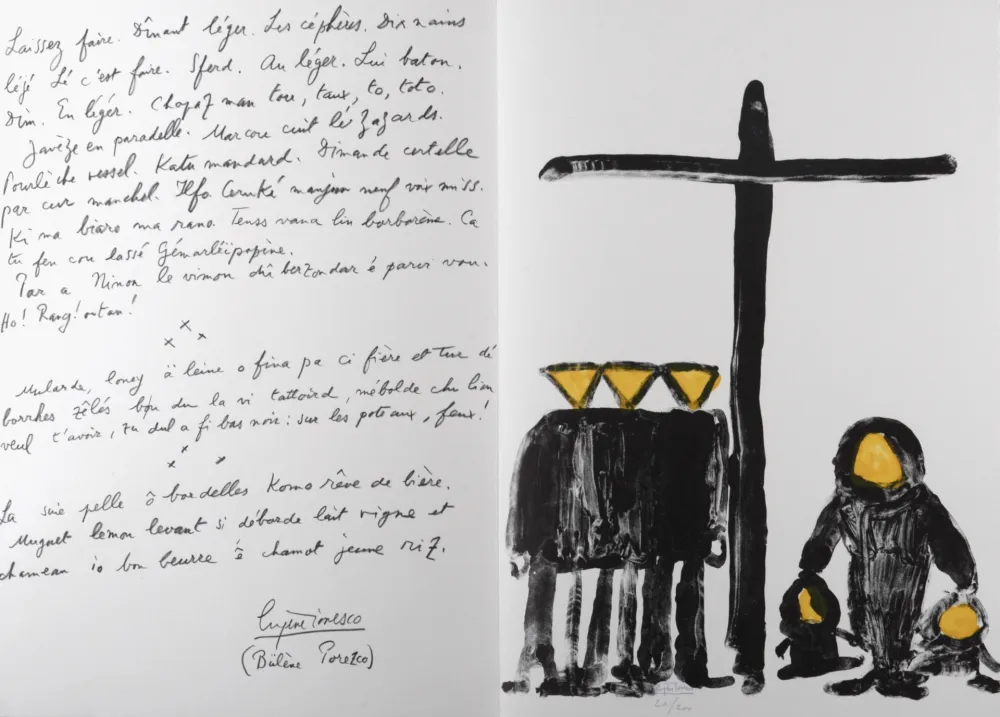 Laissez faire. Dînant léger. Les céphères. Dix nains
léjé Lé c'est faire. Sferd. Au léger. Lui baton.
Dim. En légér. Chopaz man tou, taux, to, toto.
Javèze en paradelle. Marcou cuit lé zazards.
Pourlèche vessel. Katu mandard. Dimande certelle
par cur manchel. Ilfo Ceruké manjou neuf voix miss.
Ki ma biaro ma rano. Tenss vana lin barbarène. Ca
tu fen cou lassé Gémarléïpopine.
Par a Ninon le vimon chû berzondar é parvi vou.
Ho! Rang! outan!
x
x x
Mularde, loney ä leine o fina pa ci fière et Tuc dé
borrches zélés bou du la vi tattoird, mébolde chu lian
veul t'avoir, zu dul a fi bas noir: sur les poteaux, feux!
x
x x
La suie pelle ô bordelles Komo rêve de bière.
Muguet lémon levant si déborde lait vigne et
chameau io bon beurre ê chamot jeune riz.
Eugène Ionesco
(Bülène Porezco)
21/200